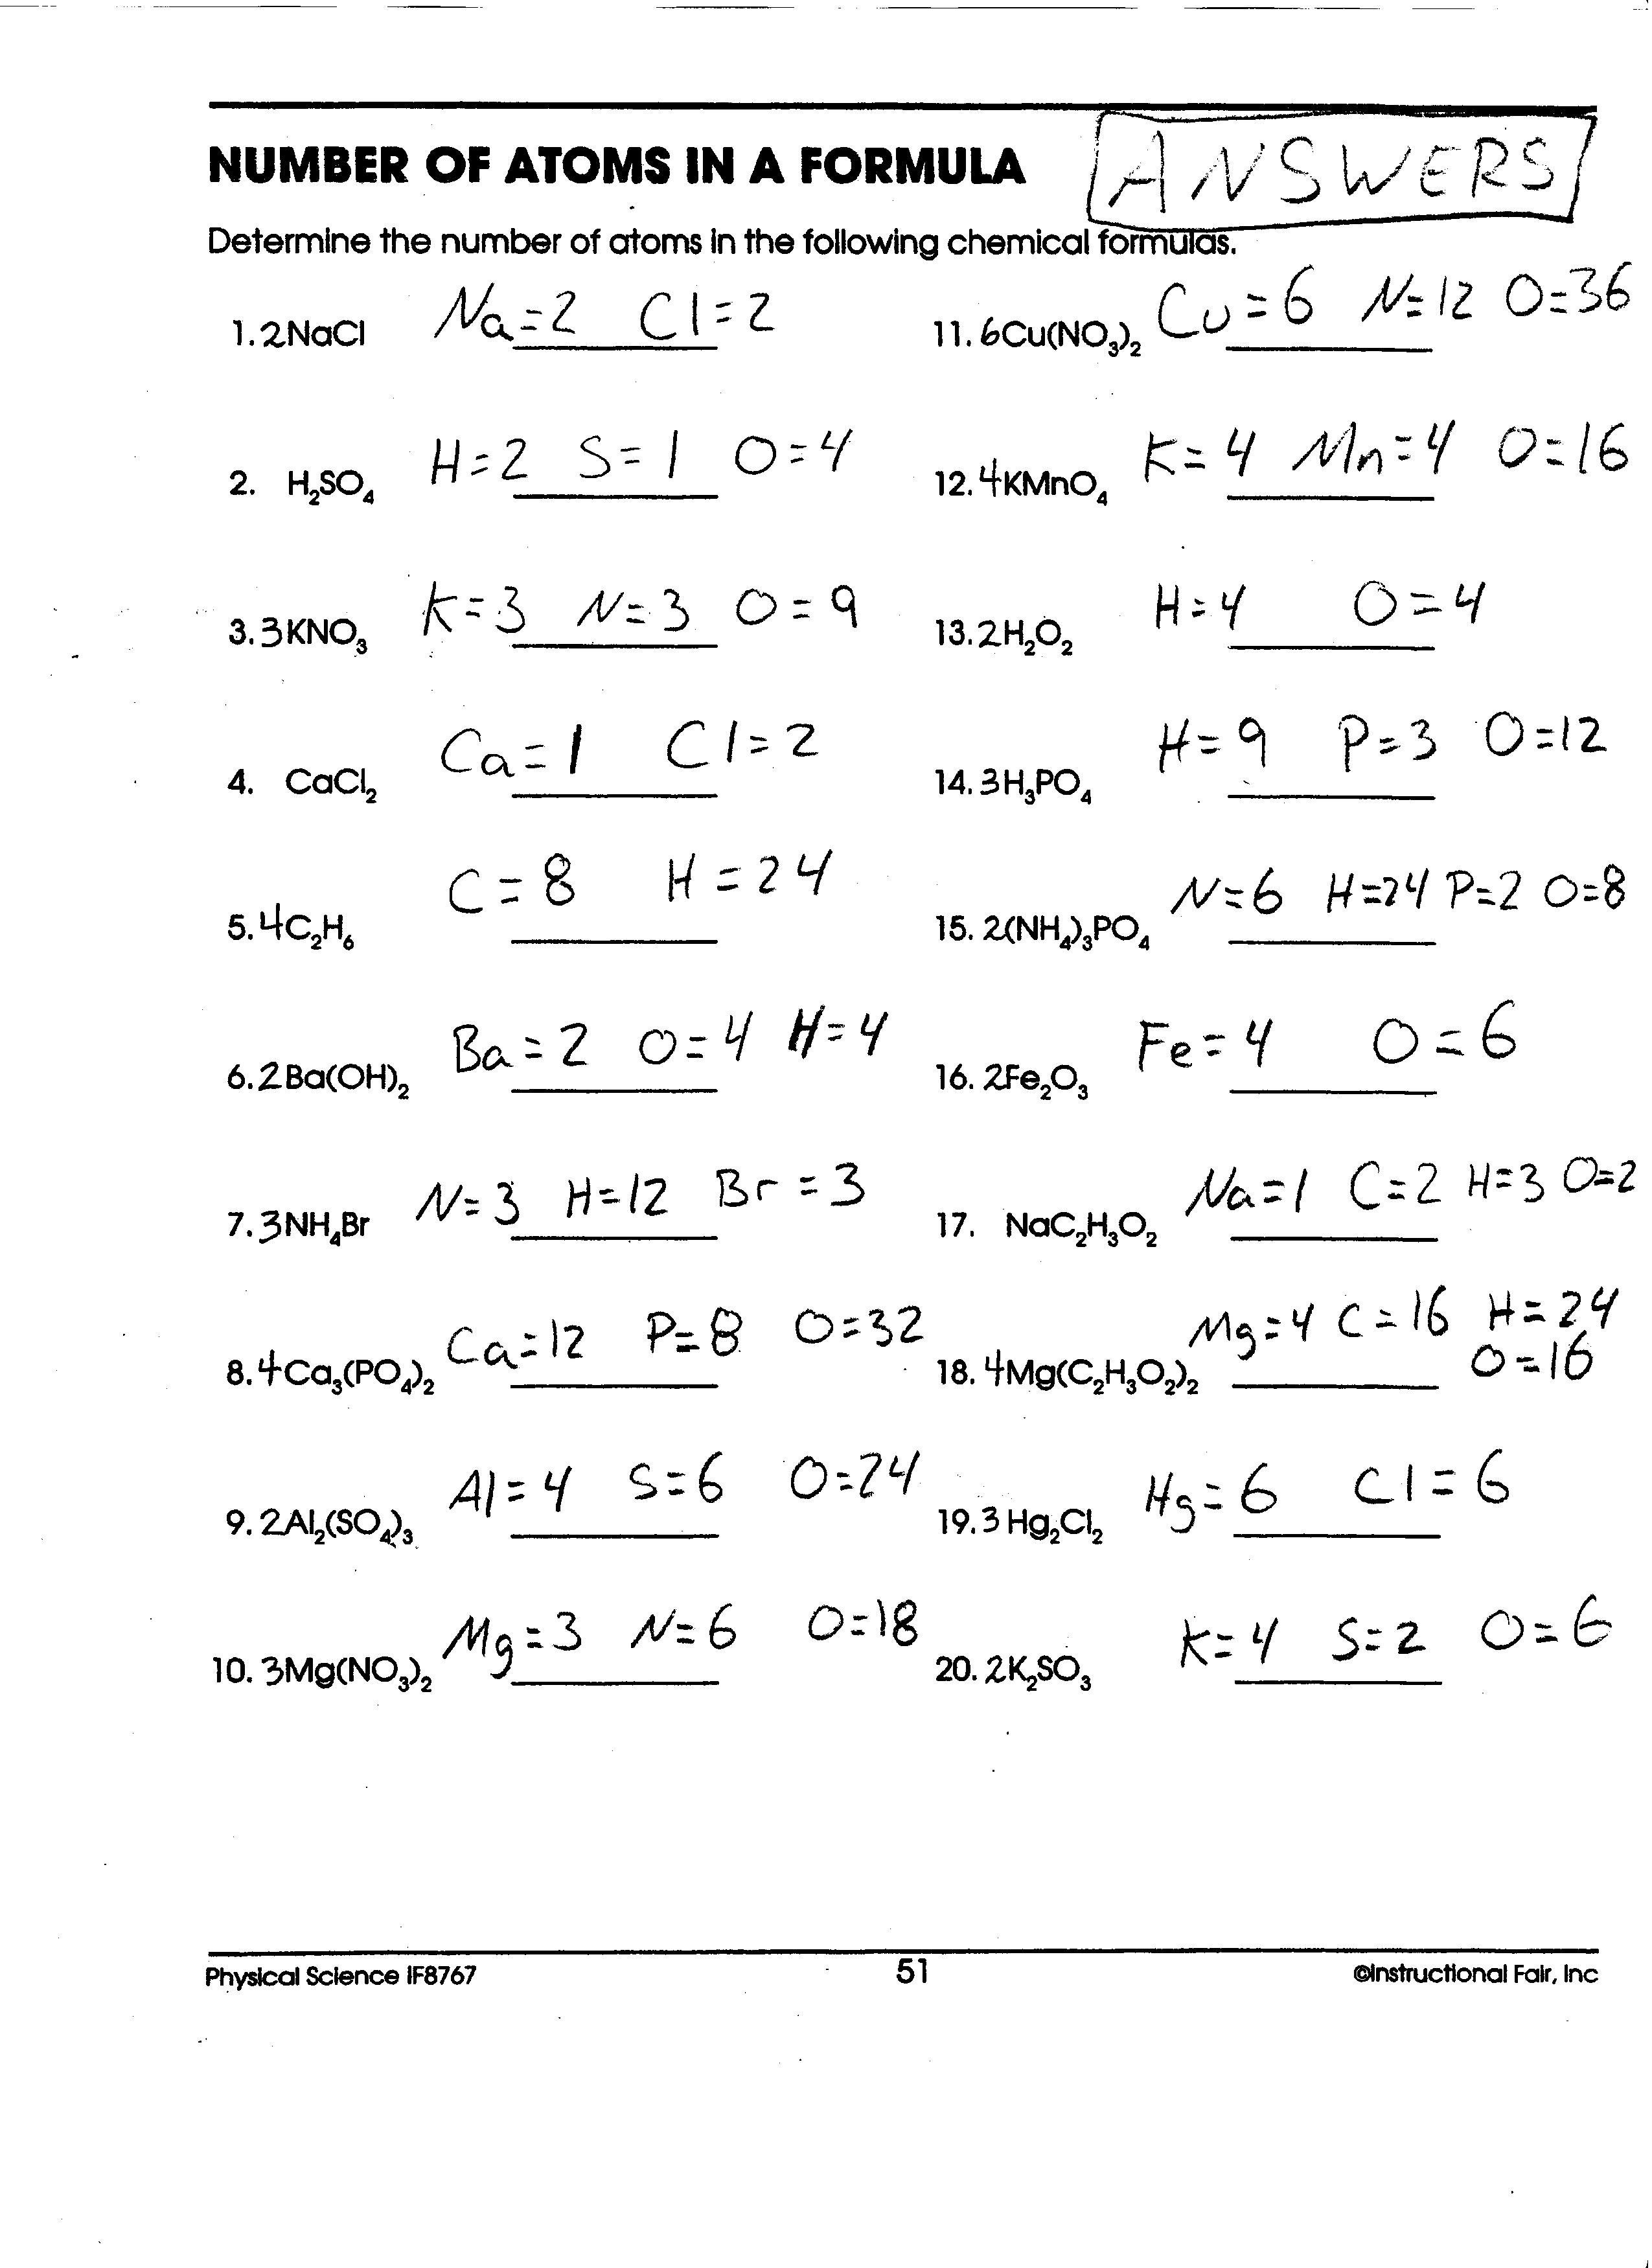 NUMBER OF ATOMS IN A FORMULA ANSWERS
Determine the number of atoms in the following chemical formulas.
1. 2NaCl Na=2 Cl=2
2. H₂SO₄ H=2 S=1 O=4
3. 3KNO₃ K=3 N=3 O=9
4. CaCl₂ Ca=1 Cl=2
5. 4C₂H₆ C=8 H=24
6. 2Ba(OH)₂ Ba=2 O=4 H=4
7. 3NH₄Br N=3 H=12 Br=3
8. 4Ca₃(PO₄)₂ Ca=12 P=8 O=32
9. 2Al₂(SO₄)₃ Al=4 S=6 O=24
10. 3Mg(NO₃)₂ Mg=3 N=6 O=18
11. 6Cu(NO₃)₂ Cu=6 N=12 O=36
12. 4KMnO₄ K=4 Mn=4 O=16
13. 2H₂O₂ H=4 O=4
14. 3H₃PO₄ H=9 P=3 O=12
15. 2(NH₄)₃PO₄ N=6 H=24 P=2 O=8
16. 2Fe₂O₃ Fe=4 O=6
17. NaC₂H₃O₂ Na=1 C=2 H=3 O=2
18. 4Mg(C₂H₃O₂)₂ Mg=4 C=16 H=24
O=16
19. 3Hg₂Cl₂ Hg=6 Cl=6
20. 2K₂SO₃ K=4 S=2 O=6
Physical Science IF8767 51 ©Instructional Fair, Inc